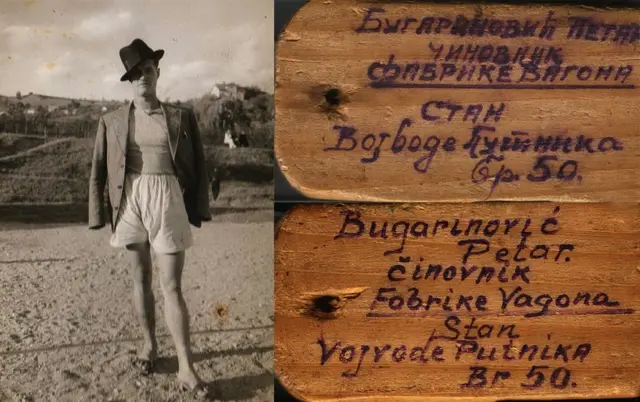 Бугариновић Петар
чиновник
фабрике Вагона
Стан
Војводе Путника
бр. 50.
Bugarinović
Petar.
činovnik
Fabrike Vagona
Stan
Vojvode Putnika
Br 50.